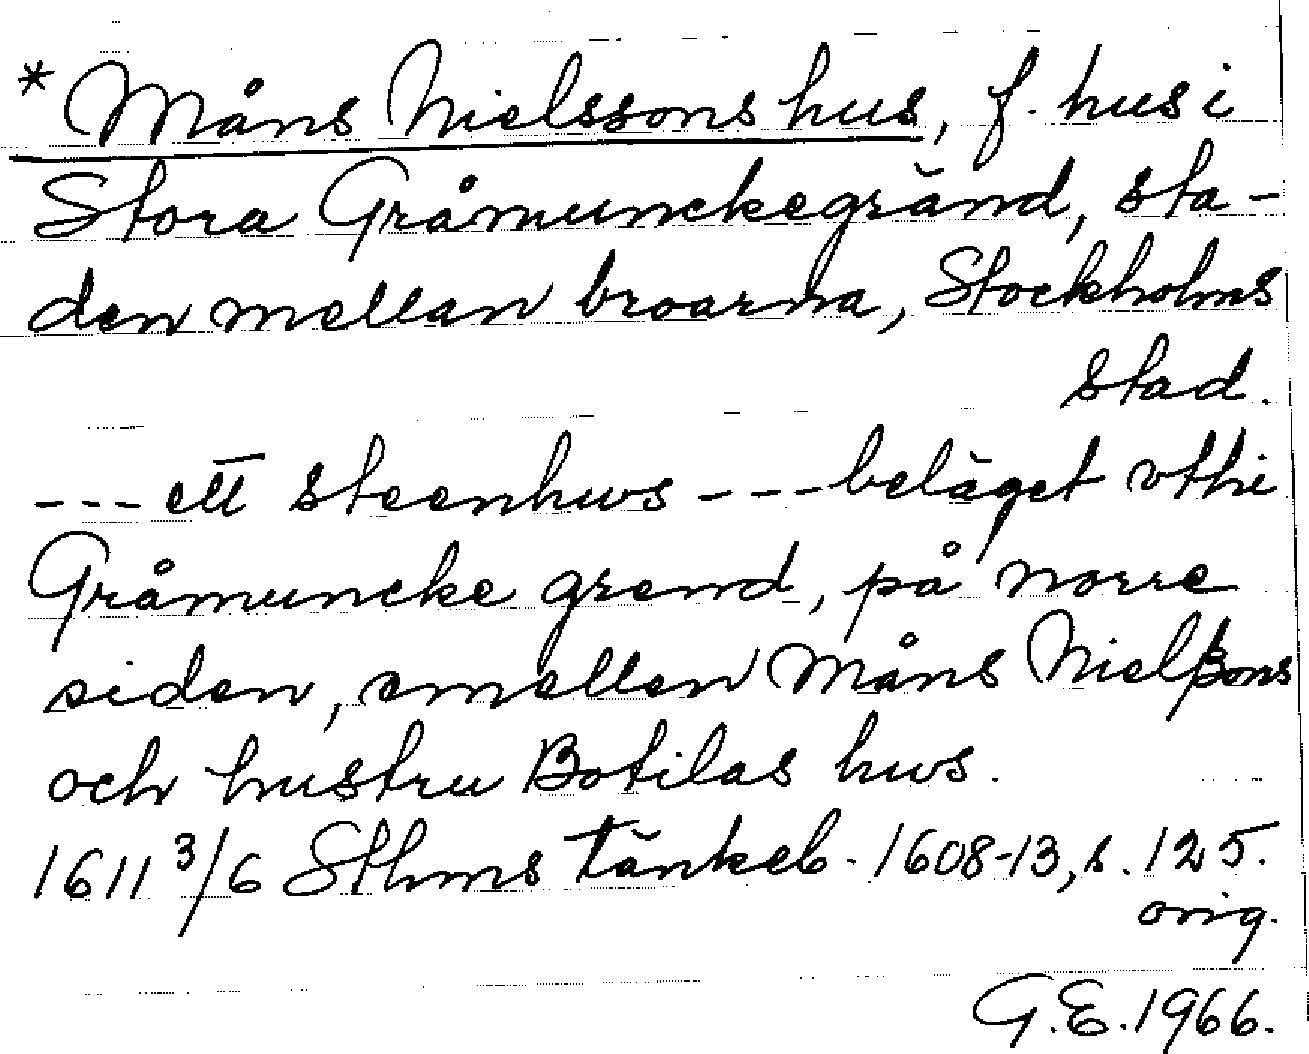 * Måns Nielssons hus, f. hus i
Stora Gråmunckegränd, sta-
den mellan broarna, Stockholms
stad.
--- ett steenhws --- beläget vthi
Gråmuncke grend, på norre
siden, emellen Måns Nielßons
och hustru Botilas hws.
1611 3/6 Sthms tänkeb. 1608-13, s. 125.
orig.
G.E. 1966.